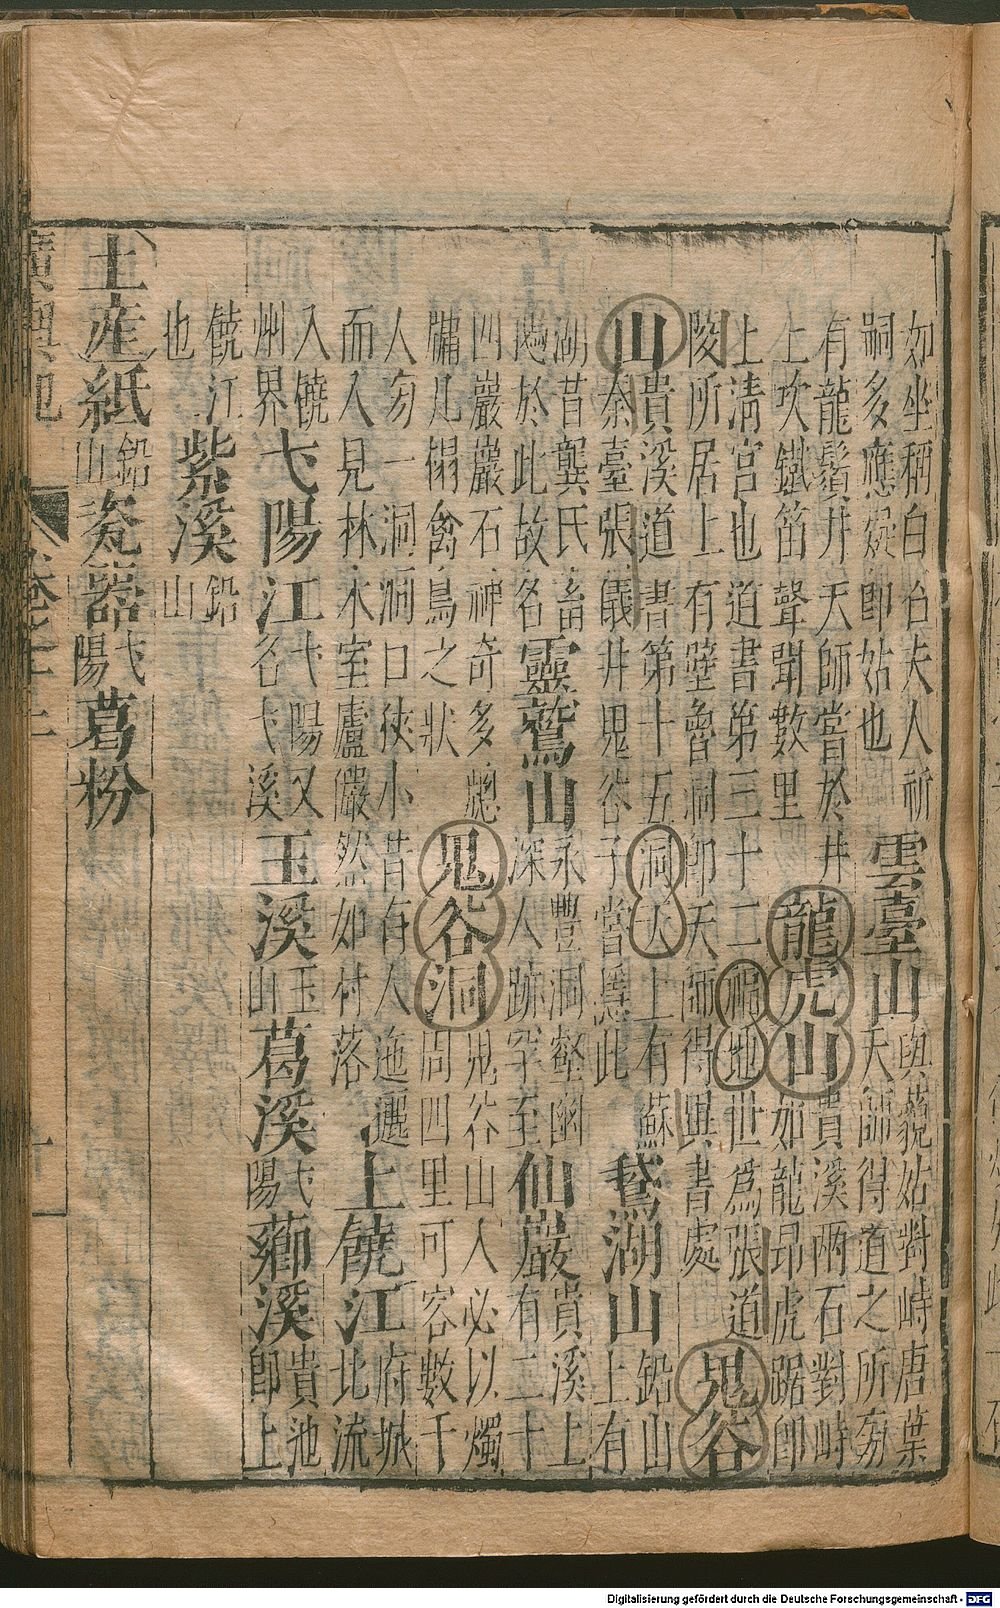 如坐稱白石夫人祈嗣多應疑即姑也雲臺山與藐姑對峙唐葉天師得道之所旁
有龍鬚井天師嘗於井上吹鐵笛聲聞數里龍虎山貴溪兩石對峙如龍昂虎踞即
上清宮也道書第三十二福地世爲張道陵所居上有壁魯洞即天師得異書處鬼谷
山貴溪道書第十五洞天上有蘇秦臺張儀井鬼谷子嘗隱此鵞湖山鉛山上有
湖昔龔氏畜鵝於此故名靈鷲山永豐洞壑幽深人跡罕至仙巖貴溪上有二十
四巖巖石神奇多窻牖几榻禽鳥之狀鬼谷洞鬼谷山人必以燭周四里可容數千
人旁一洞洞口狹小昔有人迤邐而入見林木室廬儼然如村落上饒江府城北流
入饒州界弋陽江弋陽又名弋溪玉溪玉山葛溪弋陽薌溪貴池即上
饒江也紫溪鉛山
土產紙鉛山瓷器弋陽葛粉
廣輿記 卷之十二 十一
Digitalisierung gefördert durch die Deutsche Forschungsgemeinschaft - DFG